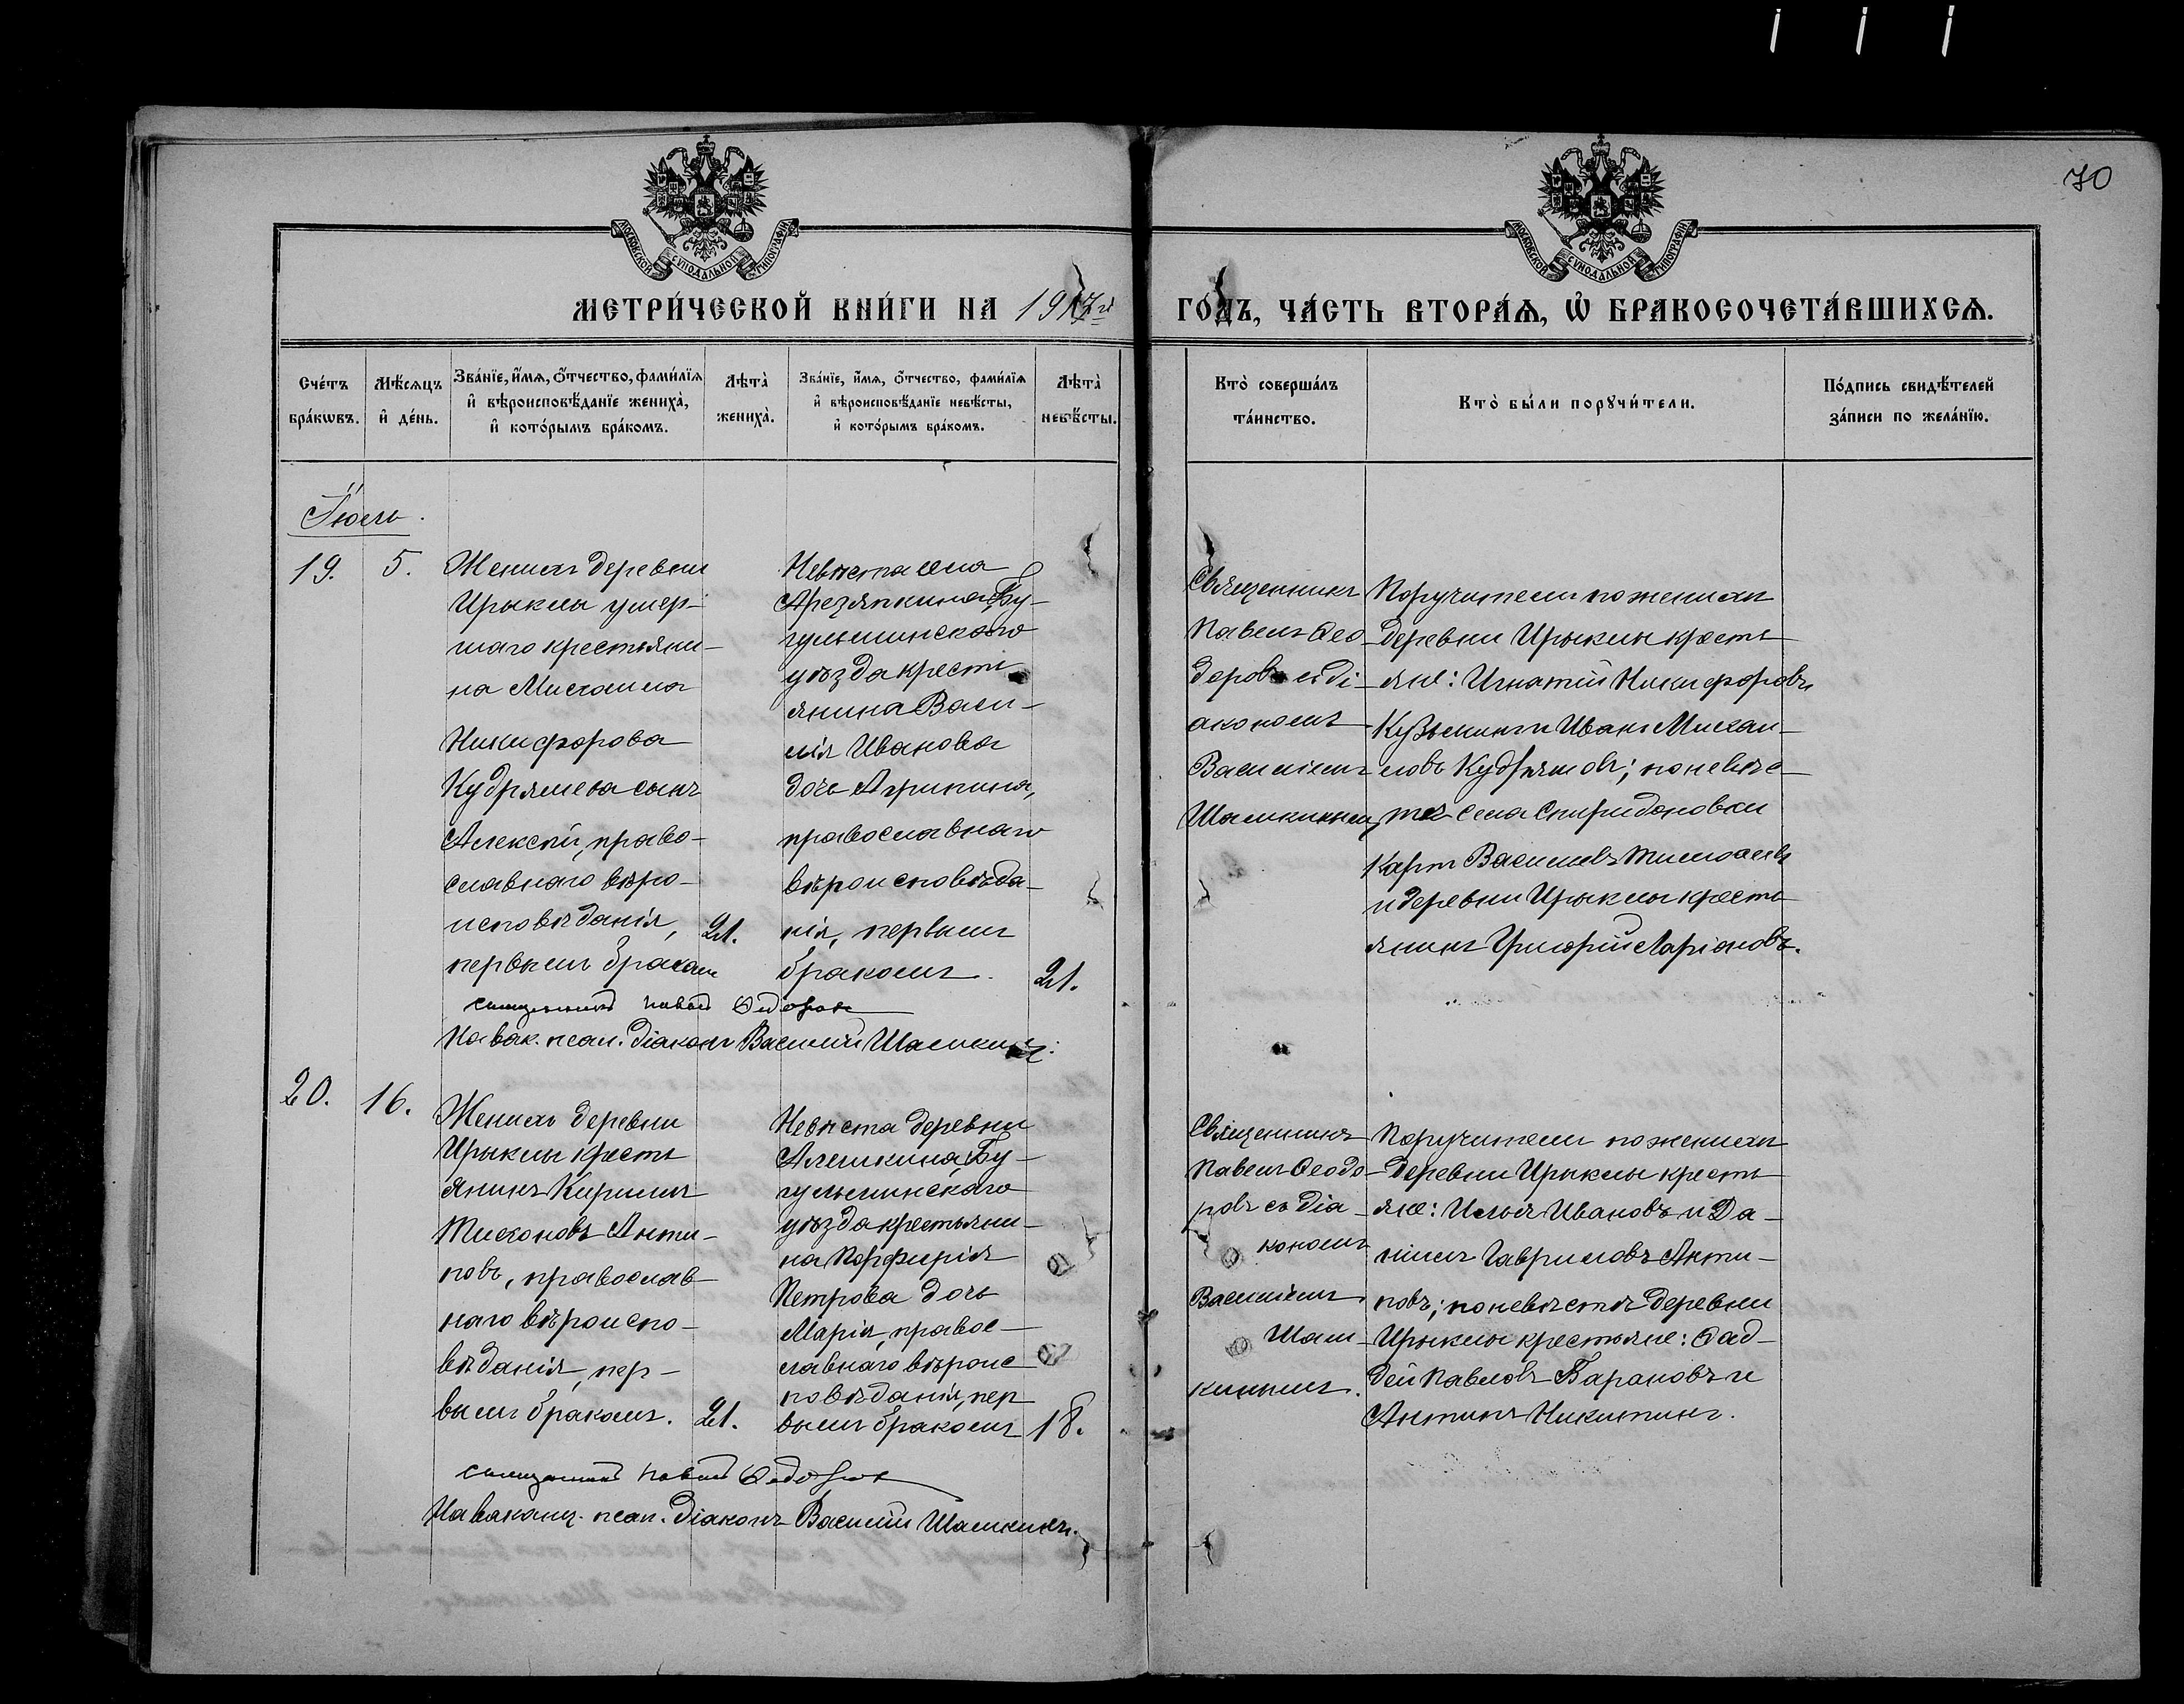 70
МОСКОВСКОЙ СѴНОДАЛЬНОЙ ТИПОГРАФІИ
МОСКОВСКОЙ СѴНОДАЛЬНОЙ ТИПОГРАФІИ
МЕТРИ́ЧЕСКОЙ КНИ́ГИ НА 1917й ГО́ДЪ, ЧА́СТЬ ВТОРА́Ѧ, Ѡ҆ БРАКОСОЧЕТА́ВШИХСѦ.
Сче́тъ бра́кѡвъ.
Мѣ́сѧцъ и҆ де́нь.
Зва́нїе, и҆́мѧ, ѻ҆́тчество, фами́лїѧ и҆ вѣроисповѣ́данїе жениха̀, и҆ кото́рымъ бра́комъ.
Лѣта̀ жениха̀.
Зва́нїе, и҆́мѧ, ѻ҆́тчество, фами́лїѧ и҆ вѣроисповѣ́данїе невѣ́сты, и҆ кото́рымъ бра́комъ.
Лѣта̀ невѣ́сты.
Кто̀ соверша́лъ та́инство.
Кто̀ бы́ли порꙋчи́тели.
По́дпись свидѣ́телей за́писи по жела́нїю.
Іюль.
19.
5.
Женихъ деревни
Ирыклы умер-
шаго крестьяни-
на Михаила
Никифорова
Кудряшева сынъ
Алексѣй, право-
славнаго вѣро-
исповѣданія,
первымъ бракомъ
21.
Невѣста села
Арезяпкина, Бу-
гульминскаго
уѣзда кресть
янина Васи-
лія Иванова
дочь Агрипина,
православнаго
вѣроисповѣда-
нія, первымъ
бракомъ.
21.
Священникъ
Павелъ Ѳео-
доровъ съ ді-
акономъ
Василіемъ
Шашкинымъ
Поручители по женихѣ
деревни Ирыклы кресть
яне: Игнатій Никифоровъ
Кузьминъ и Иванъ Михаи-
ловъ Кудряшовъ; по невѣс-
тѣ села Спиридоновки
Карпъ Васильевъ Тимоѳеевъ
и деревни Ирыклы кресть
янинъ Григорій Ларіоновъ.
священникъ Павелъ Ѳедоровъ
На вак. псал. діаконъ Василій Шашкинъ.
20.
16.
Женихъ деревни
Ирыклы кресть
янинъ Кириллъ
Тихоновъ Анти-
повъ, православ-
наго вѣроиспо-
вѣданія, пер-
вымъ бракомъ.
21.
Невѣста деревни
Алешкина, Бу-
гульминскаго
уѣзда крестьяни-
на Порфирія
Петрова дочь
Марія, правос-
лавнаго вѣроис
повѣданія, пер
вымъ бракомъ
18.
Священникъ
Павелъ Ѳеодо-
ровъ съ діа-
кономъ
Василіемъ
Шаш-
кинымъ.
Поручители по женихѣ
деревни Ирыклы кресть
яне: Илья Ивановъ и Да-
ніилъ Гавриловъ Анти-
повъ; по невѣстѣ деревни
Ирыклы крестьяне: Ѳад-
дей Павловъ Барановъ и
Антипъ Никитинъ.
священникъ Павелъ Ѳедоровъ
На ваканц. псал. діаконъ Василій Шашкинъ.